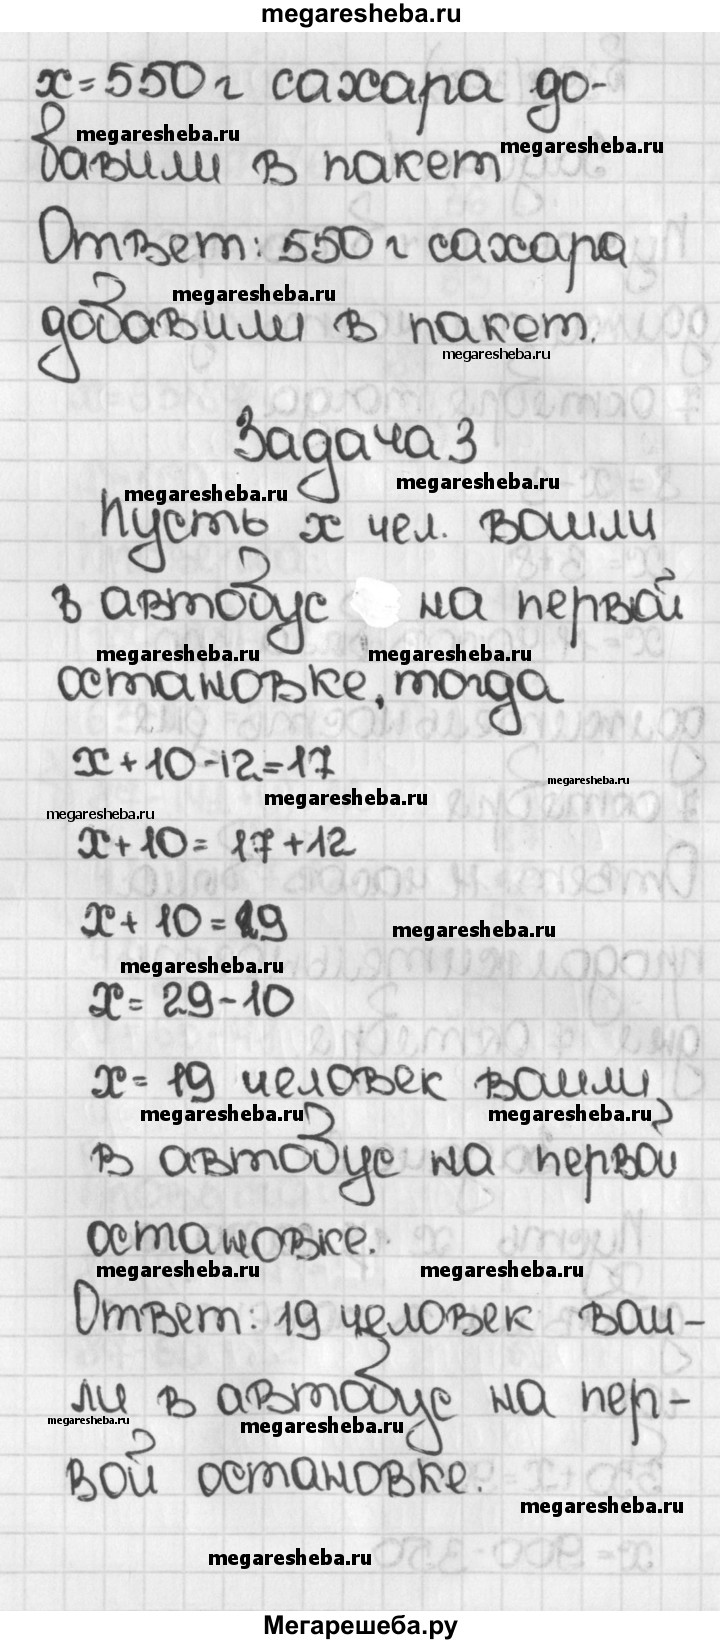 megaresheba.ru
x=550 г сахара до-
megaresheba.ru
megaresheba.ru
бавили в пакет
Ответ: 550 г сахара
megaresheba.ru
добавили в пакет.
megaresheba.ru
Задача 3
megaresheba.ru
megaresheba.ru
Пусть x чел. вошли
в автобус на первой
megaresheba.ru
megaresheba.ru
остановке, тогда
x+10-12=17
megaresheba.ru
megaresheba.ru
megaresheba.ru
x+10= 17+12
x+ 10=29
megaresheba.ru
megaresheba.ru
x= 29-10
x= 19 человек вошли
megaresheba.ru
megaresheba.ru
в автобус на первой
остановке.
megaresheba.ru
megaresheba.ru
Ответ: 19 человек вош-
ли в автобус на пер-
megaresheba.ru
megaresheba.ru
вой остановке.
megaresheba.ru
megaresheba.ru
Мегарешеба.ру